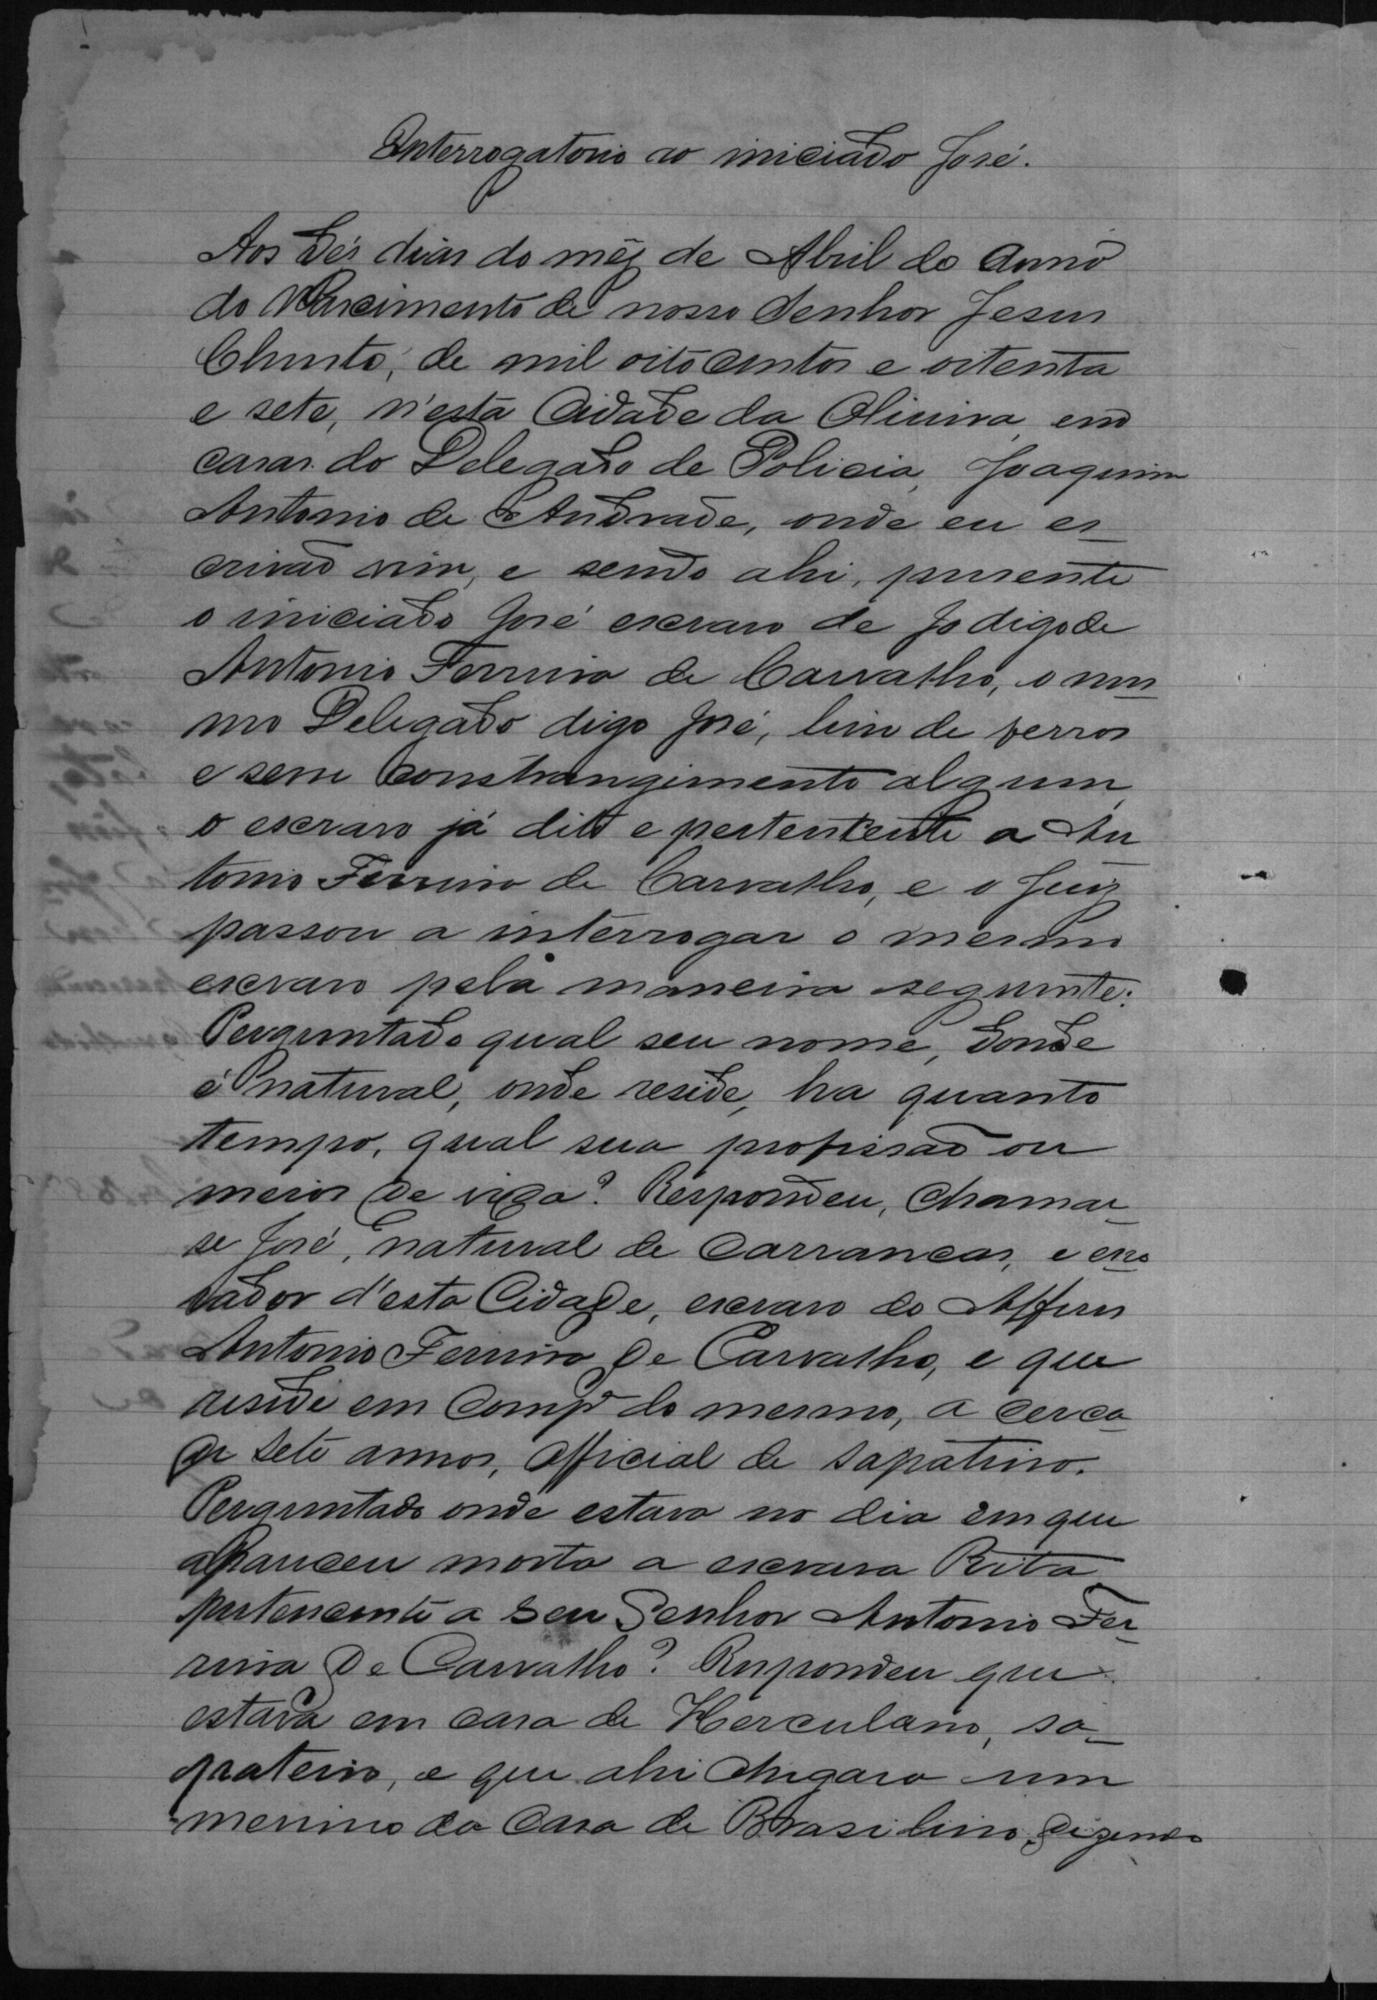 Interrogatorio ao iniciado José.
Aos Dés dias do mêz de Abril do Anno
do Nascimento de nosso Senhor Jesus
Christo, de mil oito centos e oitenta
e sete, n'esta Cidade da Oliveira em
casas do Delegado de Policia, Joaquim
Antonio de Andrade, onde eu es_
crivão vim, e sendo ahi, presente
o iniciado José escravo de Jo digo de
Antonio Ferreira de Carvalho, o mes_
mo Delegado digo José, livre de ferros
e sem constrangimento algum,
o escravo já dito e pertencente a An
tonio Ferreira de Carvalho, e o Juiz
passou a interrogar o mesmo
escravo pela maneira seguinte:
Perguntado qual seu nome, Donde
é natural, onde reside, ha quanto
tempo, qual sua profissão ou
meios de vida? Respondeu, chamar_
se José, natural de Carrancas, e mo
rador d'esta Cidade, escravo do Alferes
Antonio Ferreira de Carvalho, e que
reside em compª do mesmo, a cerca
de sete annos, official de sapateiro.
Perguntado onde estava no dia em que
appareceu morta a escrava Rita
pertencente a seu Senhor Antonio Fer_
reira de Carvalho? Respondeu que
estava em casa de Herculano, sa_
pateiro, e que ahi chegara um
menino da casa de Brasilino, dizendo